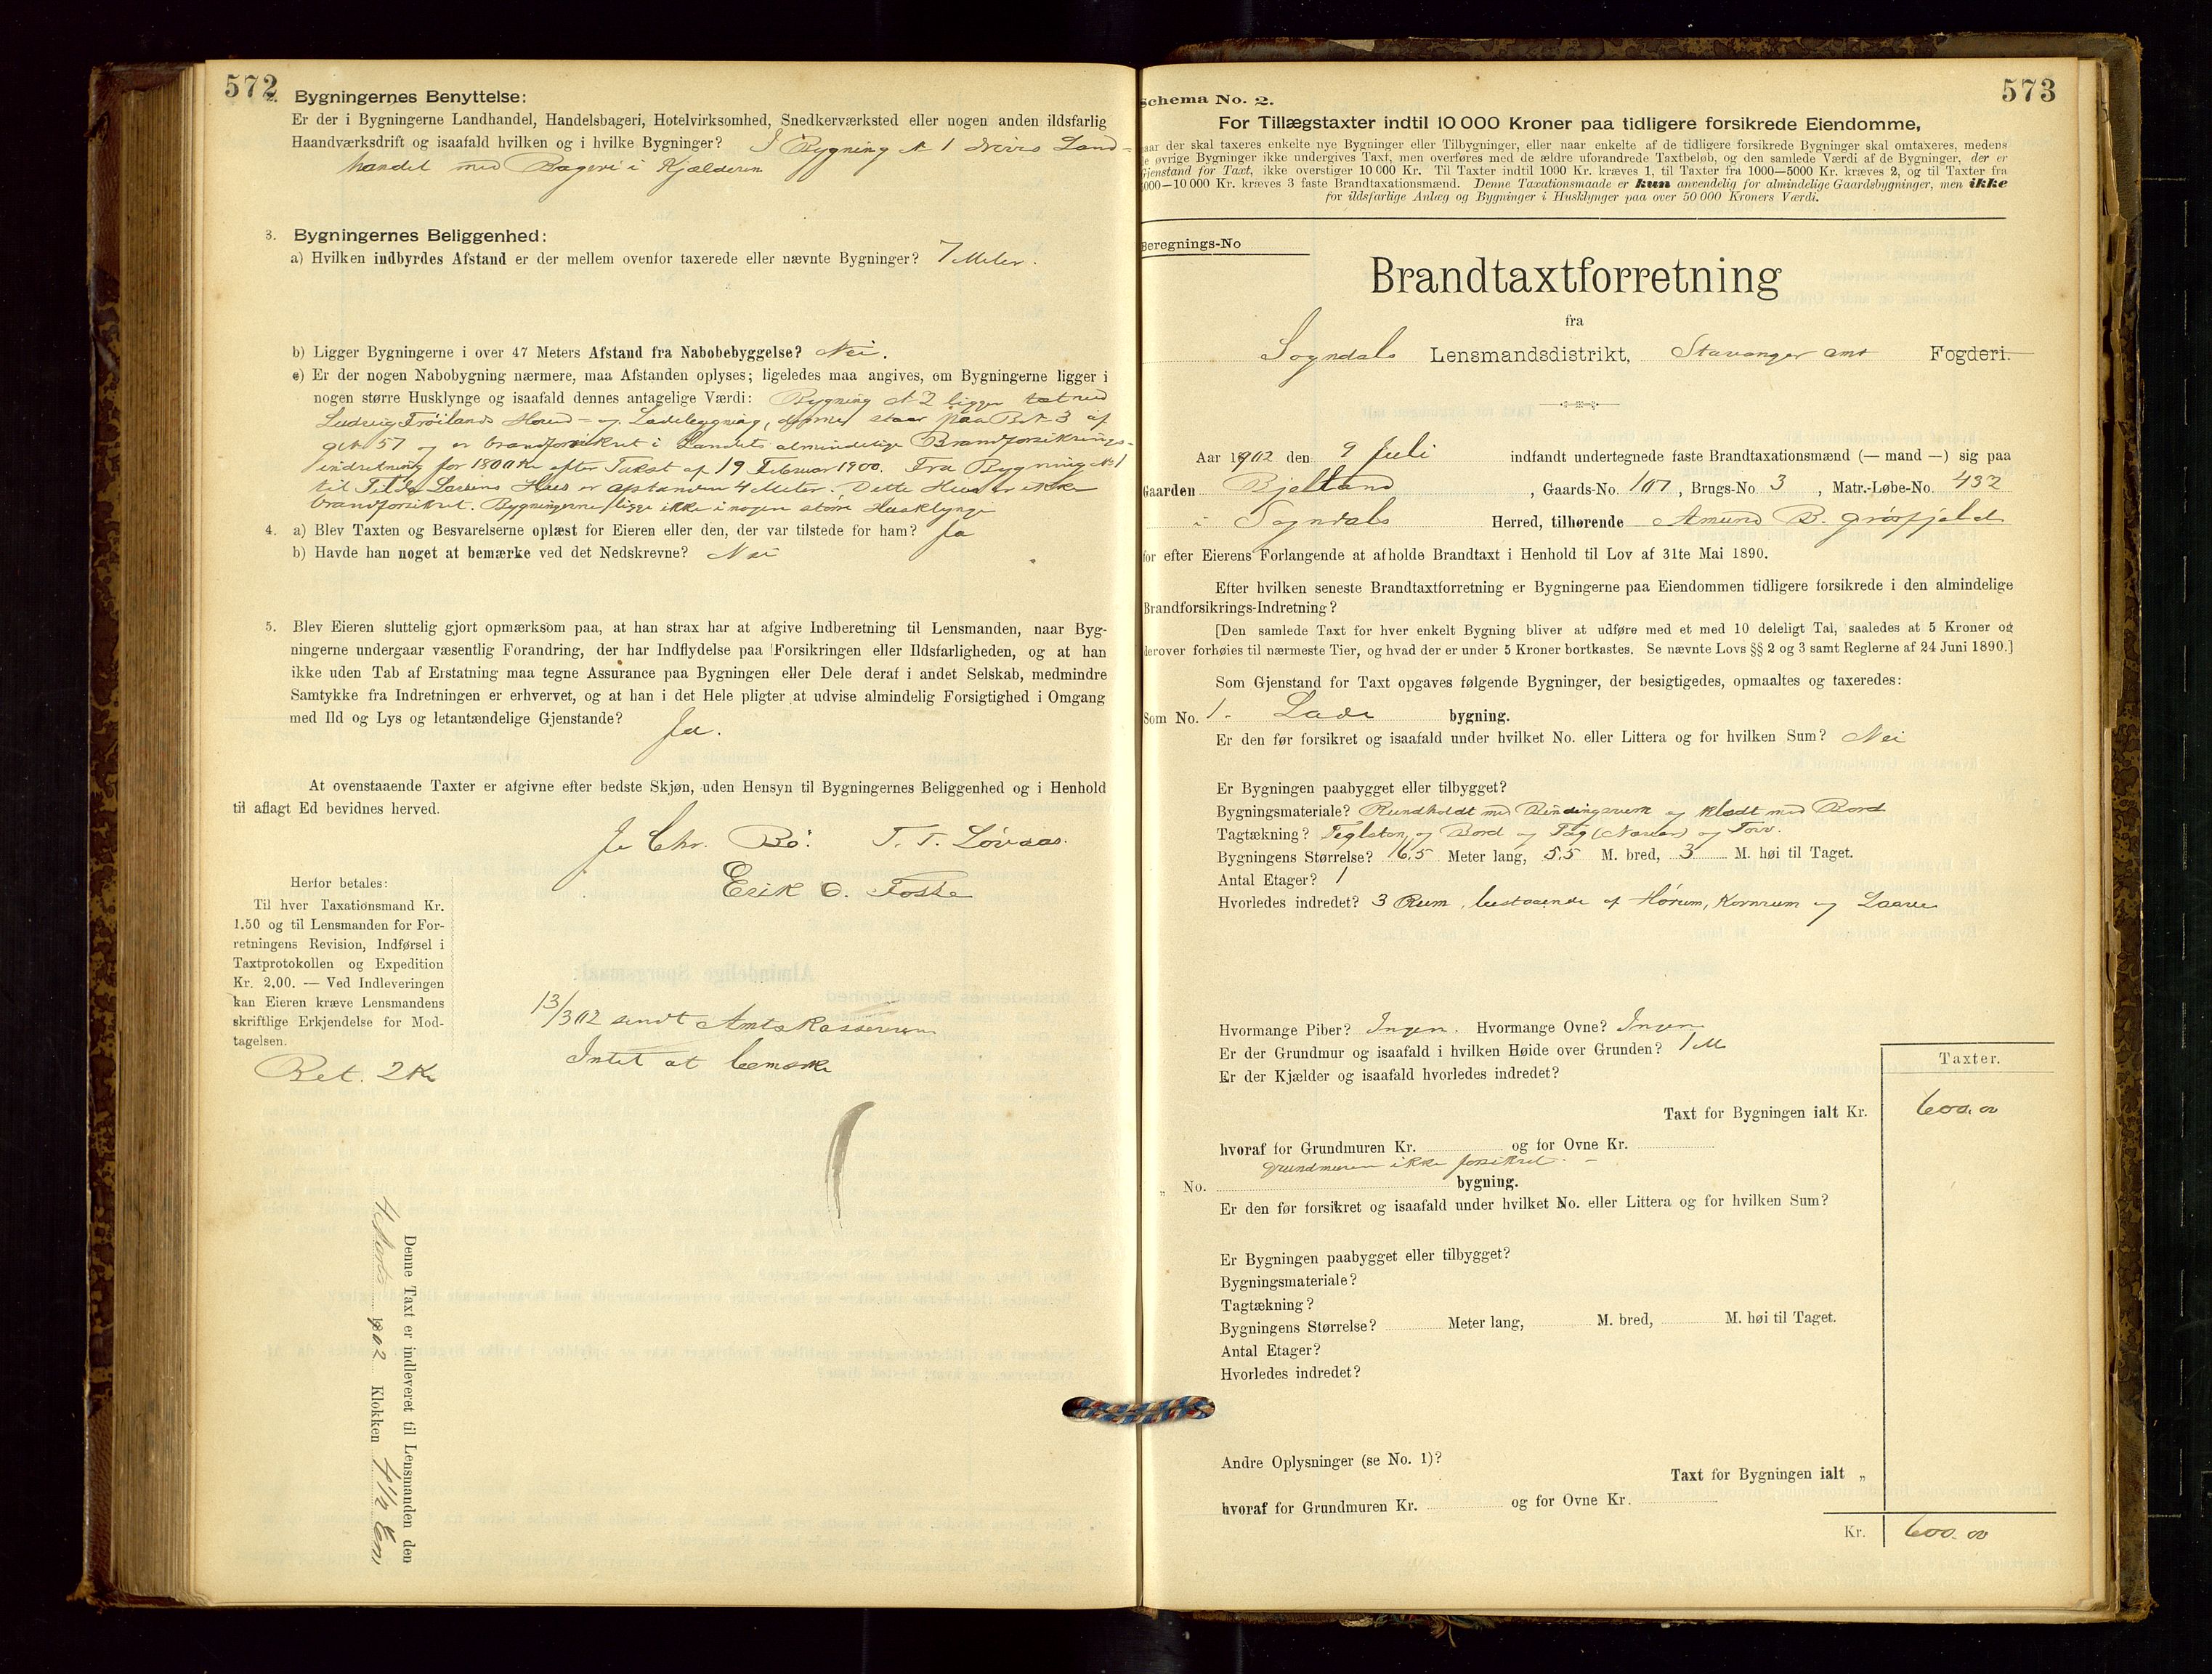 572
2. Bygningernes Benyttelse:
Er der i Bygningerne Landhandel, Handelsbageri, Hotelvirksomhed, Snedkerværksted eller nogen anden ildsfarlig
Haandværksdrift og isaafald hvilken og i hvilke Bygninger? I Bygning № 1 drives Land-
handel med Bageri i Kjælderen
3. Bygningernes Beliggenhed:
a) Hvilken indbyrdes Afstand er der mellem ovenfor taxerede eller nævnte Bygninger? 7 Meter.
b) Ligger Bygningerne i over 47 Meters Afstand fra Nabobebyggelse? Nei.
c) Er der nogen Nabobygning nærmere, maa Afstanden oplyses; ligeledes maa angives, om Bygningerne ligger i
nogen større Husklynge og isaafald dennes antagelige Værdi: Bygning № 2 ligger tæt ved
Ludvig Frøilands Hoved- og Ladebygning, denne staar paa B.№ 3 af
g.№ 57 og er brandforsikret i Landets almindelige Brandforsikrings-
indretning for 1800 Kr efter Takst af 19 Februar 1900. Fra Bygning № 1
til Tilda Larsens Hus er afstanden 4 Meter. Dette Hus er ikke
brandforsikret. Bygningerne ligge ikke i nogen større Husklynge
4. a) Blev Taxten og Besvarelserne oplæst for Eieren eller den, der var tilstede for ham? Ja
b) Havde han noget at bemærke ved det Nedskrevne? Nei
5. Blev Eieren sluttelig gjort opmærksom paa, at han strax har at afgive Indberetning til Lensmanden, naar Byg-
ningerne undergaar væsentlig Forandring, der har Indflydelse paa Forsikringen eller Ildsfarligheden, og at han
ikke uden Tab af Erstatning maa tegne Assurance paa Bygningen eller Dele deraf i andet Selskab, medmindre
Samtykke fra Indretningen er erhvervet, og at han i det Hele pligter at udvise almindelig Forsigtighed i Omgang
med Ild og Lys og letantændelige Gjenstande? Ja.
At ovenstaaende Taxter er afgivne efter bedste Skjøn, uden Hensyn til Bygningernes Beliggenhed og i Henhold
til aflagt Ed bevidnes herved.
J. Chr. Bö. T. T. Løvaas.
Erik O. Fosse
Herfor betales:
Til hver Taxationsmand Kr.
1.50 og til Lensmanden for For-
retningens Revision, Indførsel i
Taxtprotokollen og Expedition
Kr. 2.00. — Ved Indleveringen
kan Eieren kræve Lensmandens
skriftlige Erkjendelse for Mod-
tagelsen.
Bet. 2 Kr
13/3 02 sendt Amtskassereren
Intet at bemærke
Denne Taxt er indleveret til Lensmanden den
4 Marts 1902 Klokken 4 1/2 Em
573
Schema No. 2.
For Tillægstaxter indtil 10 000 Kroner paa tidligere forsikrede Eiendomme,
naar der skal taxeres enkelte nye Bygninger eller Tilbygninger, eller naar enkelte af de tidligere forsikrede Bygninger skal omtaxeres, medens
de øvrige Bygninger ikke undergives Taxt, men overføres med de ældre uforandrede Taxtbeløb, og den samlede Værdi af de Bygninger, der er
Gjenstand for Taxt, ikke overstiger 10 000 Kr. Til Taxter indtil 1000 Kr. kræves 1, til Taxter fra 1000—5000 Kr. kræves 2, og til Taxter fra
5000—10 000 Kr. kræves 3 faste Brandtaxationsmænd. Denne Taxationsmaade er kun anvendelig for almindelige Gaardsbygninger, men ikke
for ildsfarlige Anlæg og Bygninger i Husklynger paa over 50 000 Kroners Værdi.
Beregnings-No
Brandtaxtforretning
fra
Sogndals Lensmandsdistrikt, Stavanger amt Fogderi.
Aar 1902 den 9 Juli indfandt undertegnede faste Brandtaxationsmænd (— mand —) sig paa
Gaarden Bjelland, Gaards-No. 107, Brugs-No. 3, Matr.-Løbe-No. 432
i Sogndals Herred, tilhørende Amund B. Grøsfjeld
for efter Eierens Forlangende at afholde Brandtaxt i Henhold til Lov af 31te Mai 1890.
Efter hvilken seneste Brandtaxtforretning er Bygningerne paa Eiendommen tidligere forsikrede i den almindelige
Brandforsikrings-Indretning?
[Den samlede Taxt for hver enkelt Bygning bliver at udføre med et med 10 deleligt Tal, saaledes at 5 Kroner og
derover forhøies til nærmeste Tier, og hvad der er under 5 Kroner bortkastes. Se nævnte Lovs §§ 2 og 3 samt Reglerne af 24 Juni 1890.]
Som Gjenstand for Taxt opgaves følgende Bygninger, der besigtigedes, opmaaltes og taxeredes:
Som No. 1. Lade bygning.
Er den før forsikret og isaafald under hvilket No. eller Littera og for hvilken Sum? Nei
Er Bygningen paabygget eller tilbygget?
Bygningsmateriale? Rundholdt med Bindingsverk og klædt med Bord
Tagtækning? Teglsten og Bord og Tag (Næver) og Torv.
Bygningens Størrelse? 16,5 Meter lang, 5,5 M. bred, 3 M. høi til Taget.
Antal Etager? 1
Hvorledes indredet? 3 Rum, bestaaende af Hørum, Kornrum og Laave
Hvormange Piber? Ingen. Hvormange Ovne? Ingen
Er der Grundmur og isaafald i hvilken Høide over Grunden? 1 M
Er der Kjælder og isaafald hvorledes indredet?
Taxter.
Taxt for Bygningen ialt Kr. 600.00
hvoraf for Grundmuren Kr. og for Ovne Kr.
Grundmuren ikke forsikret. —
„ No. bygning.
Er den før forsikret og isaafald under hvilket No. eller Littera og for hvilken Sum?
Er Bygningen paabygget eller tilbygget?
Bygningsmateriale?
Tagtækning?
Bygningens Størrelse? Meter lang, M. bred, M. høi til Taget.
Antal Etager?
Hvorledes indredet?
Andre Oplysninger (se No. 1)?
Taxt for Bygningen ialt „
hvoraf for Grundmuren Kr. og for Ovne Kr.
Kr. 600.00